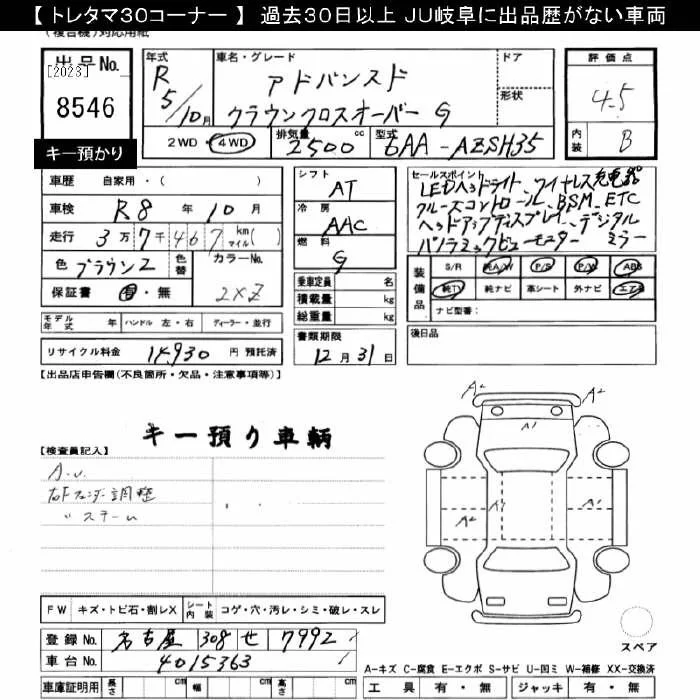 【 トレタマ30コーナー 】 過去30日以上 JU岐阜に出品歴がない車両
(複合機)対応用紙
出品No.
[2023]
8546
キー預かり
年式
R 5/10月
車名・グレード
アドバンスド
クラウンクロスオーバー G
ドア
形状
評価点
4.5
内装
B
2WD・4WD
排気量
2500 cc
型式
6AA-AZSH35
車歴 自家用・( )
車検 R8 年 10 月
走行 3万7千467 km マイル( )
色 ブラウン2 色替 カラーNo.
2XZ
保証書 有・無
モデル年式 年 ハンドル 左・右 ディーラー・並行
リサイクル料金 14,930 円 預託済
シフト
AT
冷房
AAC
燃料
G
乗車定員 名
積載量 kg
総重量 kg
書類期限
12月31日
セールスポイント
LEDヘッドライト、ワイヤレス充電器
クルーズコントロール、BSM、ETC
ヘッドアップディスプレイ、デジタルミラー
パノラミックビューモニター
装備品
S/R 純A/W P/S P/W ABS
純TV 純ナビ 革シート 外ナビ エアB
ナビ型番:
後日品
【出品店申告欄(不良箇所・欠品・注意事項等)】
キー預り車輌
【検査員記入】
A.U.
右Fフェンダー調整
〃 スチーム
A2
A2
A1
A2
A1
A2
FW キズ・トビ石・割レX シート内装 コゲ・穴・汚レ・シミ・破レ・スレ
登録No. 名古屋 308 せ 7992
車台No. 4015363
車庫証明用 長さ cm 幅 cm 高さ cm
スペア
A-キズ C-腐食 E-エクボ S-サビ U-凹ミ W-補修 XX-交換済
工具 有・無 ジャッキ 有・無